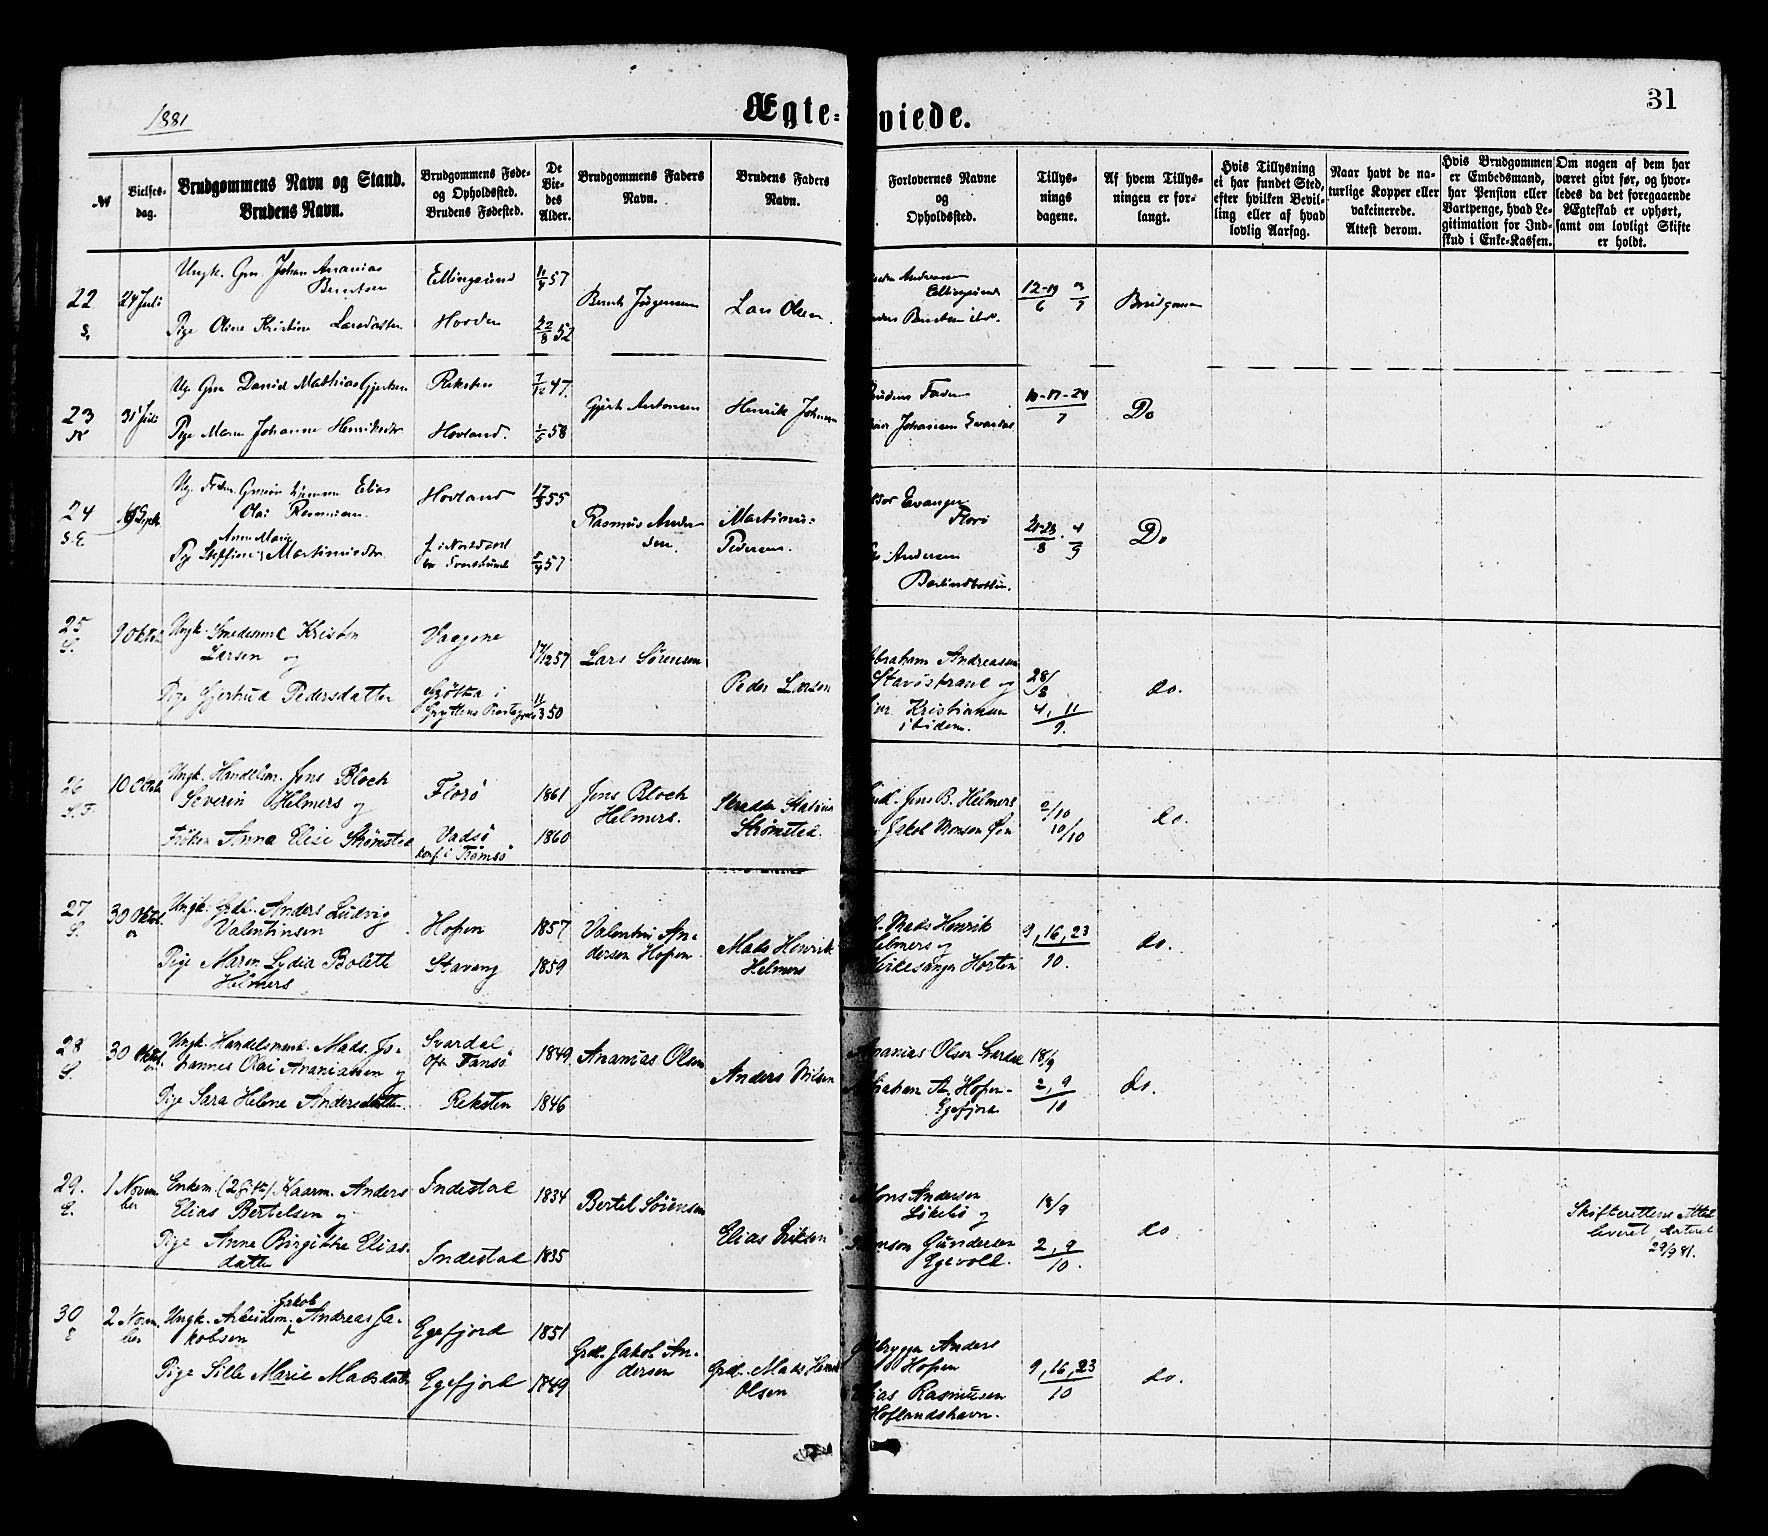 1881
Ægte-viede.
31
№
Vielses-
dag.
Brudgommens Navn og Stand.
Brudens Navn.
Brudgommens Føde-
og Opholdssted.
Brudens Fødested.
De
Vie-
des
Alder.
Brudgommens Faders
Navn.
Brudens Faders
Navn.
Forlovernes Navne
og
Opholdssted.
Tillys-
nings
dagene.
Af hvem Tillys-
ningen er for-
langt.
Hvis Tillysning
ei har fundet Sted,
efter hvilken Bevil-
ling eller af hvad
lovlig Aarsag.
Naar havt de na-
turlige Kopper eller
vakcinerede.
Attest derom.
Hvis Brudgommen
er Embedsmand,
har Pension eller
Vartpenge, hvad Le-
gitimation for Ind-
skud i Enke-Kassen.
Om nogen af dem har
været givt før, og hvor-
ledes da det foregaaende
Ægteskab er ophørt,
samt om lovligt Skifte
er holdt.
22
S.
24 Juli
Ungk. Gm. Johan Ananias
Berntsen
Pige Oline Kristine Larsdatter
Ellingsund
Hovden
11/9 57
22/8 52
Bernt Jørgensen
Lars Olsen
Andreasen
Ellingsund
Berntsen ibd.
12-19/6 3/7
Brudgommen
23
N
31 Juli
Ug. Gm. Daniel Mathias Gjertsen
Pige Maren Johanne Henriksdtr
Reksten
Hovland.
7/12 47.
1/5 58
Gjert Antonsen
Henrik Johnsen
Brudens Fader
Johansen Svardal
10-17-24/7
Do
24
S. E
Sept.
Ug. Elias
Olai Rasmussen.
Anne Marie
Pige Steffine Martinusdtr
Hovland
17/3 55
5/9 57
Rasmus Ander-
sen.
Martinus
Pedersen.
Evanger
Florø
Andersen
21-28/8 . 4/9
Do
25
S.
9 Oktob.
Ungk. Smedesvend Kristen
Larsen og
Pige Gjertrud Pedersdatter
Vaagene
i
Gryttens Præstegjeld
17/12 57
11/3 50
Lars Sørensen
Peder Larsen
Abraham Andreasen
Stavøstrand og
Kristiansen
ibidem.
28/8
4, 11/9.
do.
26
S.F.
10 Oktob.
Ungk. Handelsm. Jens Bloch
Severin Helmers og
Frøken Anna Elise Strømsted
Florø
Vadsø
konf. i Tromsø
1861
1860
Jens Bloch
Helmers.
Strømsted.
Jens B. Helmers
Jakob Monsen Øen
2/10
10/10
do.
27
S.
30 Oktob.
Ungk. Grdb. Anders Ludvig
Valentinsen
Pige Maren Lydia Bolette
Helmers
Hopen
Stavang
1857
1859
Valentin An-
dersen Hopen
Mads Henrik
Helmers
Mads Henrik
Helmers og
Kirkesanger Horten
9, 16, 23/10.
do.
28
S.
30 Oktob.
Ungk. Handelsmand. Mads Jo-
hannes Olai Ananiassen og
Pige Sara Helene Andersdatter
Svardal
Oph. Tansø
Reksten
1849
1846
Ananias Olsen
Anders Nilsen
Ananias Olsen Svardal
Abraham A. Hopen-
Egefjord
18/9
2, 9/10
do.
29.
E.
1 Novem
ber
Enkem. (2 Gift) Kaarm. Anders
Elias Bertelsen og
Pige Anne Birgitte Elias-
datter
Indestad
Indestad
1834
1835
Bertel Sørensen
Elias Eriksen
Mons Andersen
Løkebø og
Samson Gundersen
Egevoll.
18/9
2, 9/10.
do.
Skifterettens Attest
leveret, dateret
29/9 81.
30
E
2 Novem
ber
Jakob
Ungk. Arbeidsm. Andreas Ja-
kobsen
Pige Sille Marie Madsdatter
Egefjord
Egefjord
1851
1849
Grdb. Jakob An-
dersen
Grd. Mads Henrik
Olsen
Anders
Hopen
Elias Rasmusen
Hoflandshavn.
9, 16, 23/10
do.